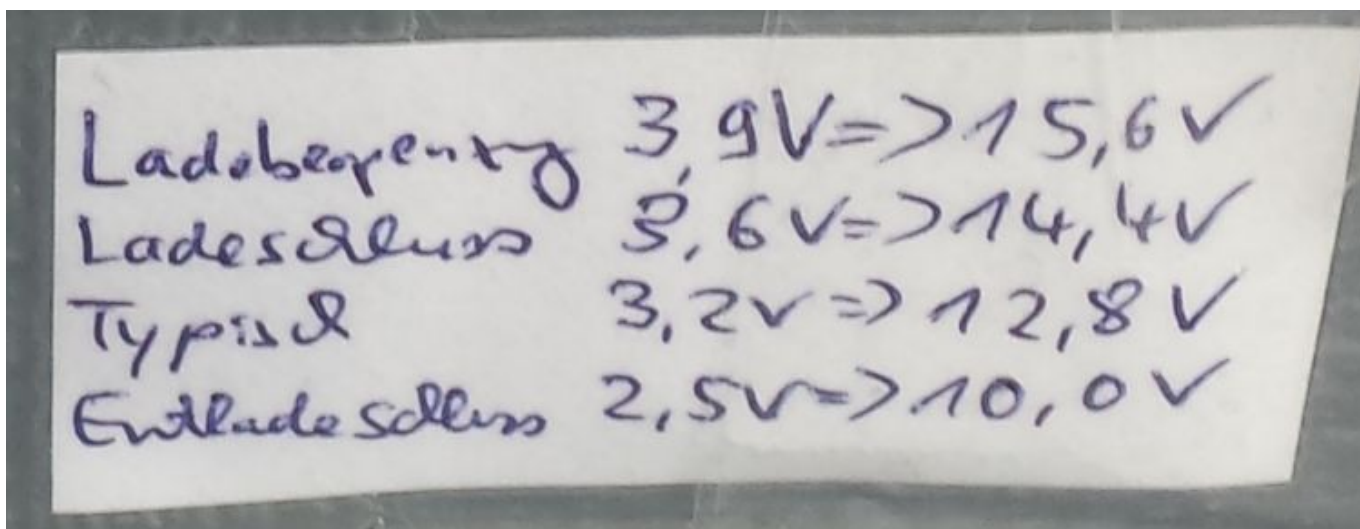 Ladebegrenzung 3,9V=>15,6V
Ladeschluss 3,6V=>14,4V
Typisch 3,2V=>12,8V
Entladeschluss 2,5V=>10,0V